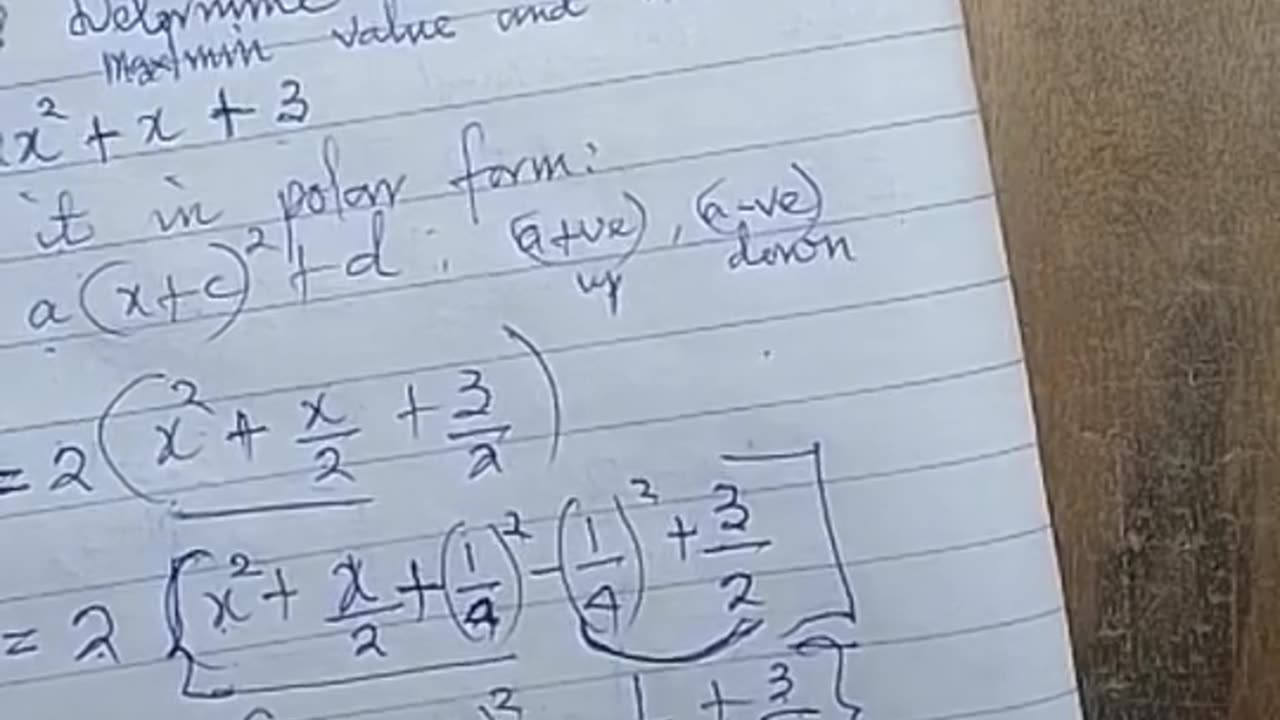 Determine
max/min value and
x² + x + 3
it in polar form:
a(x+c)² + d, (a +ve), (a -ve)
up down
= 2(x² + x/2 + 3/2)
= 2[x² + x/2 + (1/4)² - (1/4)² + 3/2]
2 1 + 3